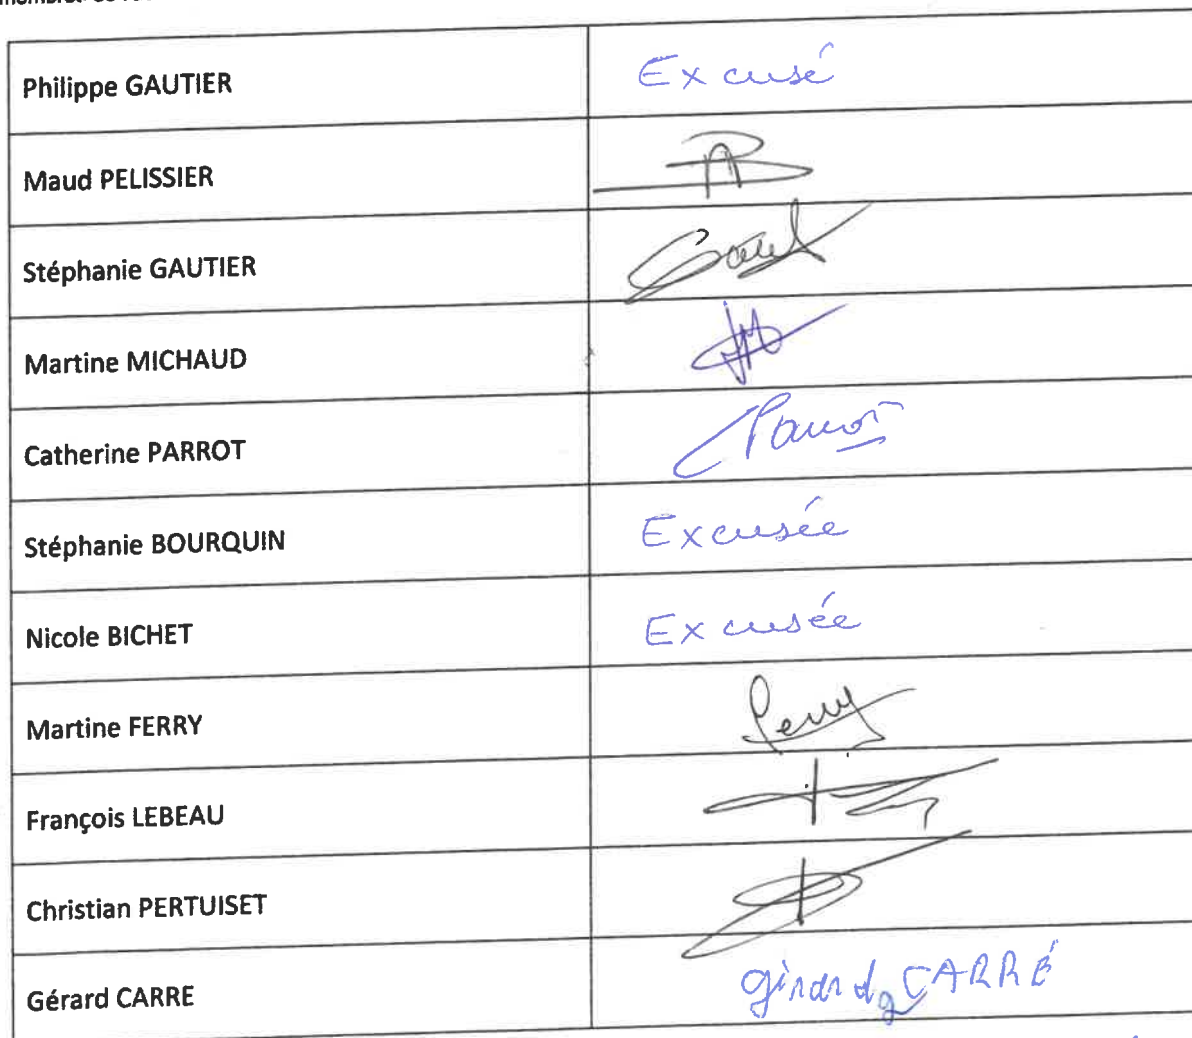 Philippe GAUTIER Excusé
Maud PELISSIER
Stéphanie GAUTIER
Martine MICHAUD
Catherine PARROT Parrot
Stéphanie BOURQUIN Excusée
Nicole BICHET Excusée
Martine FERRY Ferry
François LEBEAU
Christian PERTUISET
Gérard CARRE Gérard CARRÉ